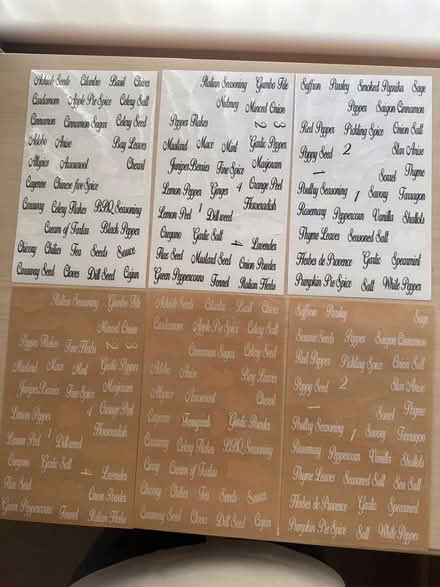 Adobade Seeds Cilantro Basil Chives
Cardamom Apple Pie Spice Celery Salt
Cinnamon Cinnamon Sugar Celery Seed
Adobo Anise Bay Leaves
Allspice Arrowroot Chervil
Cayenne Chinese five Spice
Caraway Celery Flakes BBQ Seasoning
Cream of Tartar Black Pepper
Chicory Chilies Tea Seeds Sauce
Caraway Seed Cloves Dill Seed Cajun
Italian Seasoning Gumbo File
Nutmeg Minced Onion
Pepper Flakes 2 3
Mustard Mace Mint Garlic Pepper
Juniper Berries Fine Spice Marjoram
Lemon Pepper Ginger 4 Orange Peel
Horseradish
Lemon Peel 1 Dill weed
Oregano Garlic Salt
4 Lavender
Flax Seed Mustard Seed Onion Powder
Green Peppercorns Fennel Italian Herbs
Saffron Parsley Smoked Paprika Sage
Pepper Saigon Cinnamon
Red Pepper Pickling Spice Onion Salt
Poppy Seed 2 Star Anise
1 Sorrel Thyme
Poultry Seasoning 1 Savory Tarragon
Rosemary Peppercorn Vanilla Shallots
Thyme Leaves Seasoned Salt
Herbes de Provence Garlic Spearmint
Pumpkin Pie Spice Salt White Pepper
Italian Seasoning Gumbo File
Minced Onion
Pepper Flakes Fine Herbs 2 3
Mustard Mace Mint Garlic Pepper
Juniper Berries Fine Spice Marjoram
Lemon Pepper 4 Orange Peel
Horseradish
Lemon Peel 1 Dill weed
Oregano Garlic Salt
4 Lavender
Flax Seed Onion Powder
Green Peppercorns Fennel Italian Herbs
Seeds Cilantro Basil Chives
Cardamom Apple Pie Spice Celery Salt
Cinnamon Sugar Celery Seed
Adobo Anise Bay Leaves
Allspice Arrowroot Chervil
Cayenne Fenugreek Garlic
Caraway Celery Flakes BBQ Seasoning
Curry Cream of Tartar
Chicory Chilies Tea Seeds Sauce
Caraway Seed Cloves Dill Seed Cajun
Saffron Parsley Sage
Sesame Seeds Pepper Saigon Cinnamon
Red Pepper Pickling Spice Onion Salt
Poppy Seed 2 Star Anise
1 Sorrel Thyme
Poultry Seasoning 1 Savory Tarragon
Rosemary Peppercorn Vanilla Shallots
Thyme Leaves Seasoned Salt Sea Salt
Herbes de Provence Garlic Spearmint
Pumpkin Pie Spice Salt White Pepper